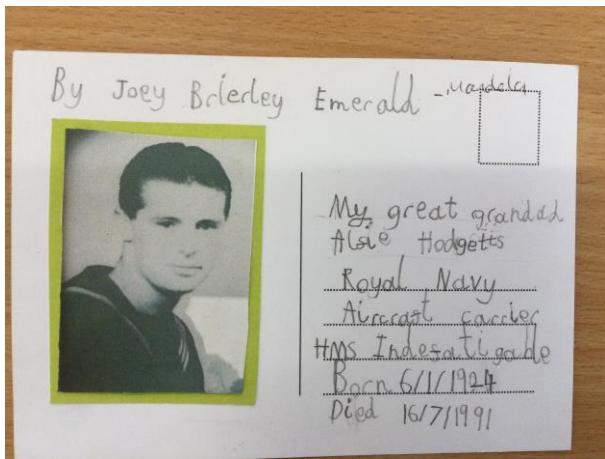 By Joey Brierley Emerald - Mandela
My great grandad
Alsie Hodgetts
Royal Navy
Aircraft carrier
HMS Indefatigable
Born 6/1/1924
Died 16/7/1991